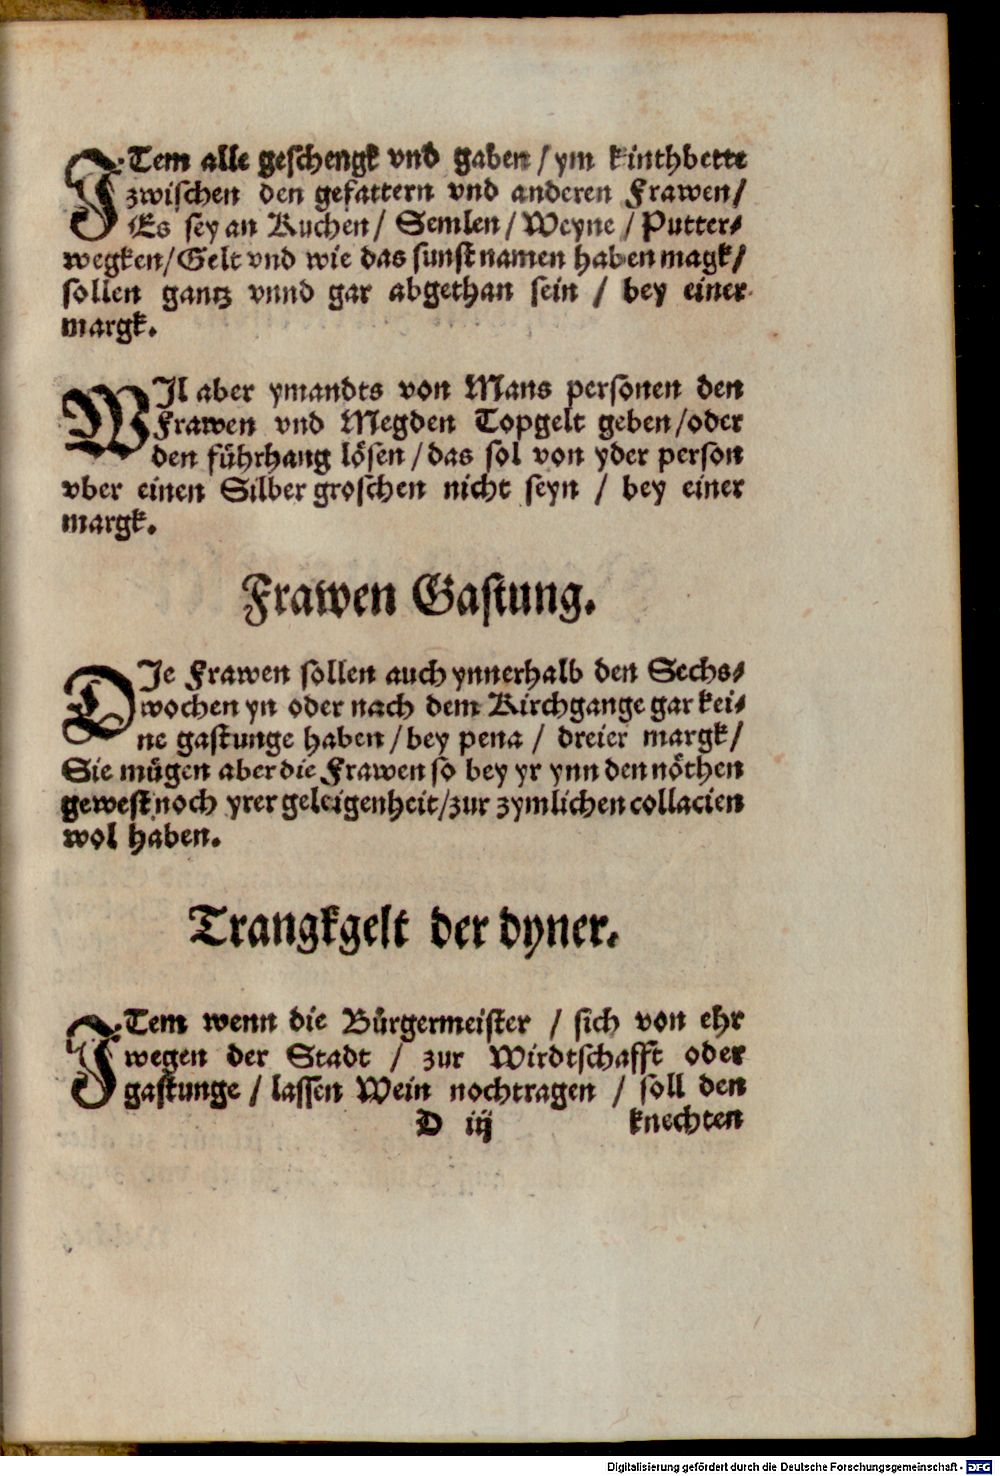 ITem alle geschengk vnd gaben / ym kinthbette
zwischen den gefattern vnd anderen Frawen /
Es sey an Kuchen / Semlen / Weyne / Putter⸗
wegken / Gelt vnd wie das sunst namen haben magk /
sollen gantz vnnd gar abgethan sein / bey einer
margk.
WIl aber ymandts von Mans personen den
Frawen vnd Megden Topgelt geben / oder
den führhang lösen / das sol von yder person
vber einen Silber groschen nicht seyn / bey einer
margk.
Frawen Gastung.
DIe Frawen sollen auch ynnerhalb den Sechs⸗
wochen yn oder nach dem Kirchgange gar kei⸗
ne gastunge haben / bey pena / dreier margk /
Sie mügen aber die Frawen so bey yr ynn den nöthen
gewest noch yrer geleigenheit / zur zymlichen collacien
wol haben.
Trangkgelt der dyner.
ITem wenn die Bürgermeister / sich von ehr
wegen der Stadt / zur Wirdtschafft oder
gastunge / lassen Wein nochtragen / soll den
D iij knechten
Digitalisierung gefördert durch die Deutsche Forschungsgemeinschaft - DFG